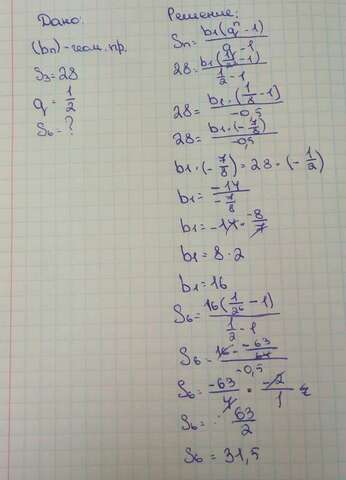 Дано:
(bn) - геом. пр.
S3 = 28
q = 1/2
S6 = ?
Решение:
Sn = b1(q^n - 1) / q - 1
28 = b1(1/2 - 1) / 1/2 - 1
28 = b1 · (1/8 - 1) / -0,5
28 = b1 · (-7/8) / -0,5
b1 · (-7/8) = 28 · (-1/2)
b1 = -14 / -7/8
b1 = -14 · -8/7
b1 = 8 · 2
b1 = 16
S6 = 16(1/2^6 - 1) / 1/2 - 1
S6 = 16 · -63/64 / -0,5
S6 = -63/4 · -2/1
S6 = 63/2
S6 = 31,5